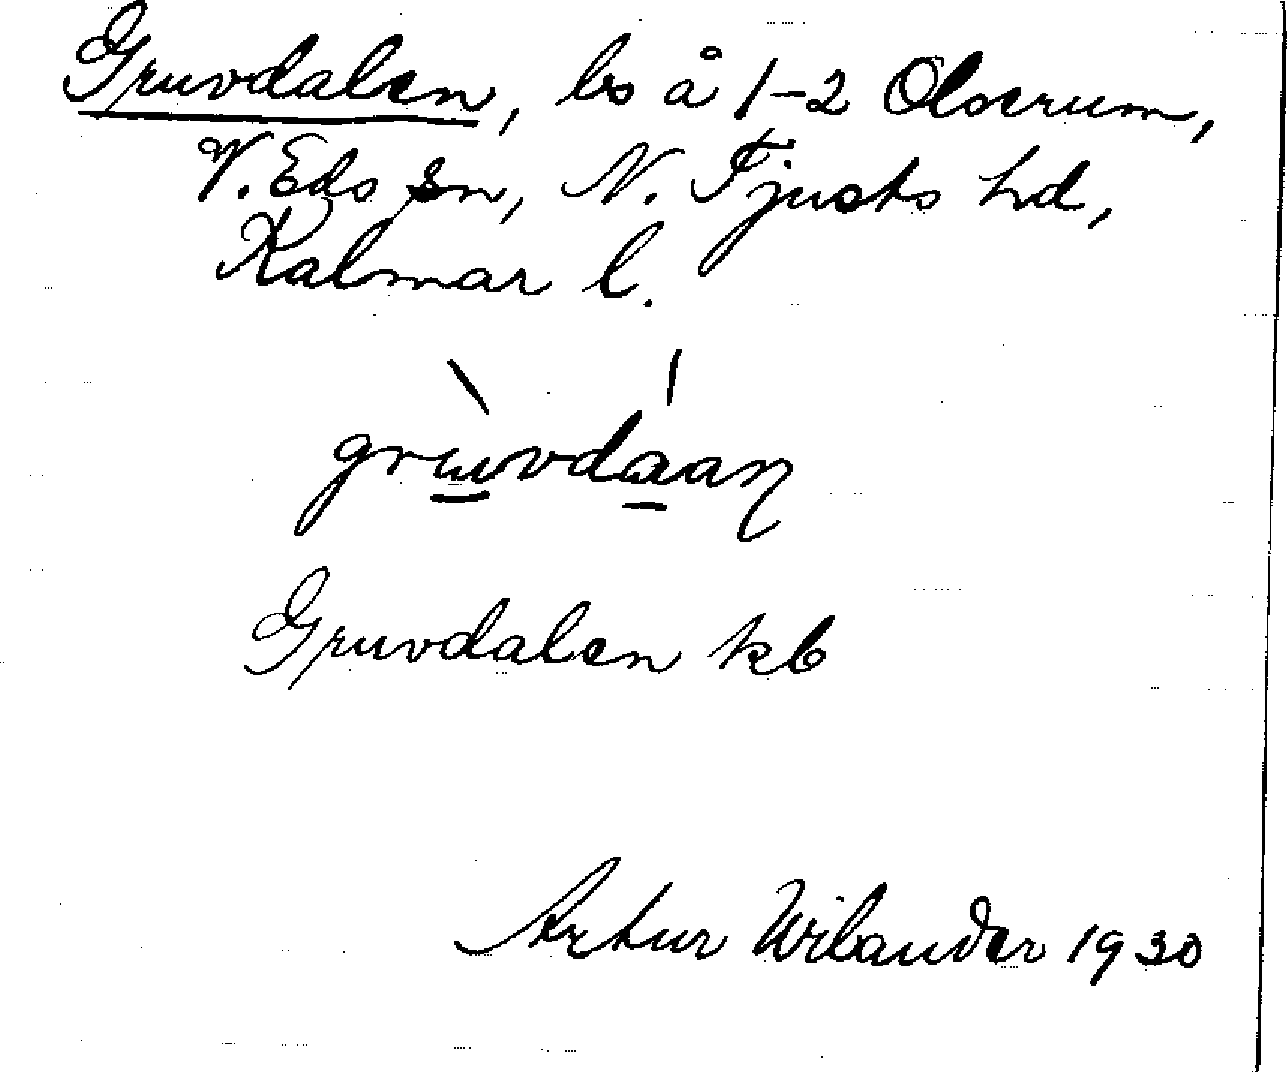 Gruvdalen, ls å 1-2 Olserum,
V. Eds sn, N. Tjusts hd,
Kalmar l.
grùvdáan
Gruvdalen kb
Artur Wilander 1930